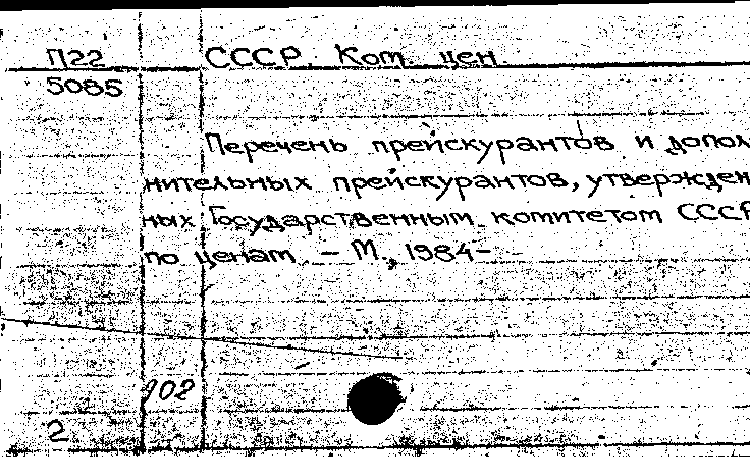 П22 СССР. Ком. цен.
5085
Перечень прейскурантов и допол
нительных прейскурантов, утвержден
ных Государственным комитетом СССР
по ценам. – М., 1984–
102
2